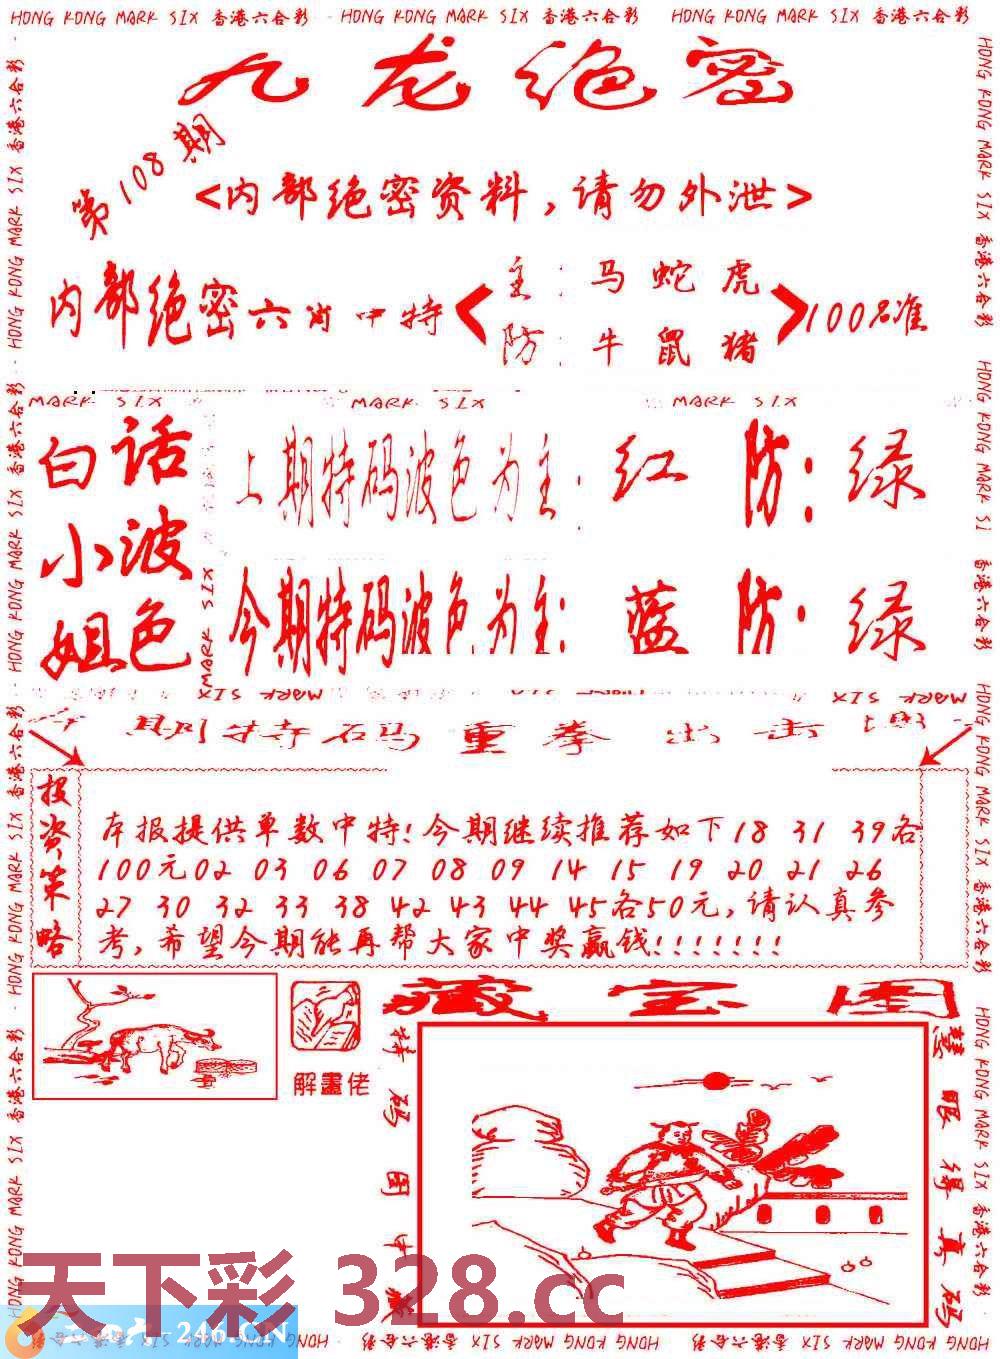 HONG KONG MARK SIX 香港六合彩 HONG KONG MARK SIX 香港六合彩 HONG KONG MARK SIX 香港六合彩
九龙绝密
第108期
<内部绝密资料,请勿外泄>
内部绝密六肖中特
主:马蛇虎
防:牛鼠猪
100%准
MARK SIX MARK SIX MARK SIX
白小姐
话波色
上期特码波色为主:红 防:绿
今期特码波色为主:蓝 防:绿
期特码重拳出击
投资策略
本报提供单数中特!今期继续推荐如下18 31 39各
100元02 03 06 07 08 09 14 15 19 20 21 26
27 30 32 33 38 42 43 44 45各50元,请认真参
考,希望今期能再帮大家中奖赢钱!!!!!!!
藏宝图
解畫佬
特码图中
慧眼得真码
天下彩 328.cc
246.CN
HONG KONG MARK SIX 香港六合彩